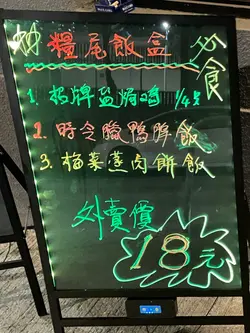 糧尾飯盒 必食
1. 招牌盐焗鸡 1/4只
2. 時令臘鴨髀飯
3. 梅菜蒸肉餅飯
外賣優
18元